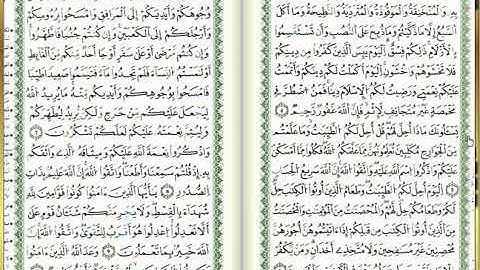 بِهِ وَالْمُنْخَنِقَةُ وَالْمَوْقُوذَةُ وَالْمُتَرَدِّيَةُ وَالنَّطِيحَةُ وَمَا أَكَلَ
السَّبُعُ إِلَّا مَا ذَكَّيْتُمْ وَمَا ذُبِحَ عَلَى النُّصُبِ وَأَن تَسْتَقْسِمُوا
بِالْأَزْلَامِ ذَٰلِكُمْ فِسْقٌ الْيَوْمَ يَئِسَ الَّذِينَ كَفَرُوا مِن دِينِكُمْ
فَلَا تَخْشَوْهُمْ وَاخْشَوْنِ الْيَوْمَ أَكْمَلْتُ لَكُمْ دِينَكُمْ وَأَتْمَمْتُ
عَلَيْكُمْ نِعْمَتِي وَرَضِيتُ لَكُمُ الْإِسْلَٰمَ دِينًا فَمَنُ اضْطُرَّ فِي
مَخْمَصَةٍ غَيْرَ مُتَجَانِفٍ لِإِثْمٍ فَإِنَّ اللَّهَ غَفُورٌ رَحِيمٌ
يَسْـَٔلُونَكَ مَاذَا أُحِلَّ لَهُمْ قُلْ أُحِلَّ لَكُمُ الطَّيِّبَٰتُ وَمَا عَلَّمْتُم
مِّنَ الْجَوَارِحِ مُكَلِّبِينَ تُعَلِّمُونَهُنَّ مِمَّا عَلَّمَكُمُ اللَّهُ فَكُلُوا مِمَّا أَمْسَكْنَ
عَلَيْكُمْ وَاذْكُرُوا اسْمَ اللَّهِ عَلَيْهِ وَاتَّقُوا اللَّهَ إِنَّ اللَّهَ سَرِيعُ الْحِسَابِ
الْيَوْمَ أُحِلَّ لَكُمُ الطَّيِّبَٰتُ وَطَعَامُ الَّذِينَ أُوتُوا الْكِتَٰبَ حِلٌّ
لَكُمْ وَطَعَامُكُمْ حِلٌّ لَهُمْ وَالْمُحْصَنَٰتُ مِنَ الْمُؤْمِنَٰتِ وَالْمُحْصَنَٰتُ
مِنَ الَّذِينَ أُوتُوا الْكِتَٰبَ مِن قَبْلِكُمْ إِذَا ءَاتَيْتُمُوهُنَّ أُجُورَهُنَّ
مُحْصِنِينَ غَيْرَ مُسَٰفِحِينَ وَلَا مُتَّخِذِي أَخْدَانٍ وَمَن يَكْفُرْ
وُجُوهَكُمْ وَأَيْدِيَكُمْ إِلَى الْمَرَافِقِ وَامْسَحُوا بِرُءُوسِكُمْ
وَأَرْجُلَكُمْ إِلَى الْكَعْبَيْنِ وَإِن كُنتُمْ جُنُبًا فَاطَّهَّرُوا
وَإِن كُنتُم مَّرْضَىٰ أَوْ عَلَىٰ سَفَرٍ أَوْ جَاءَ أَحَدٌ مِّنكُم مِّنَ الْغَائِطِ
أَوْ لَٰمَسْتُمُ النِّسَاءَ فَلَمْ تَجِدُوا مَاءً فَتَيَمَّمُوا صَعِيدًا طَيِّبًا
فَامْسَحُوا بِوُجُوهِكُمْ وَأَيْدِيكُم مِّنْهُ مَا يُرِيدُ اللَّهُ
لِيَجْعَلَ عَلَيْكُم مِّنْ حَرَجٍ وَلَٰكِن يُرِيدُ لِيُطَهِّرَكُمْ
وَلِيُتِمَّ نِعْمَتَهُ عَلَيْكُمْ لَعَلَّكُمْ تَشْكُرُونَ
وَاذْكُرُوا نِعْمَةَ اللَّهِ عَلَيْكُمْ وَمِيثَٰقَهُ الَّذِي وَاثَقَكُم
بِهِ إِذْ قُلْتُمْ سَمِعْنَا وَأَطَعْنَا وَاتَّقُوا اللَّهَ إِنَّ اللَّهَ عَلِيمٌ بِذَاتِ
الصُّدُورِ يَٰأَيُّهَا الَّذِينَ ءَامَنُوا كُونُوا قَوَّٰمِينَ لِلَّهِ
شُهَدَاءَ بِالْقِسْطِ وَلَا يَجْرِمَنَّكُمْ شَنَـَٔانُ قَوْمٍ عَلَىٰ
أَلَّا تَعْدِلُوا اعْدِلُوا هُوَ أَقْرَبُ لِلتَّقْوَىٰ وَاتَّقُوا اللَّهَ إِنَّ
اللَّهَ خَبِيرٌ بِمَا تَعْمَلُونَ وَعَدَ اللَّهُ الَّذِينَ ءَامَنُوا